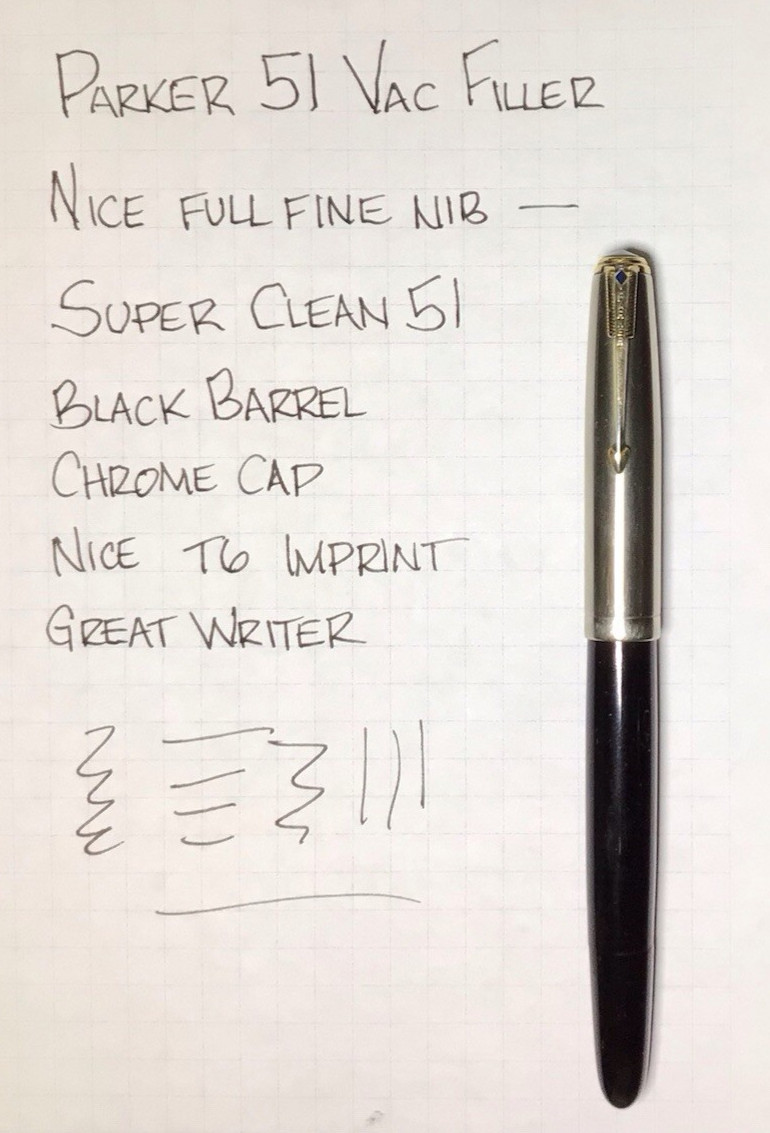 PARKER 51 VAC FILLER
NICE FULL FINE NIB —
SUPER CLEAN 51
BLACK BARREL
CHROME CAP
NICE T6 IMPRINT
GREAT WRITER